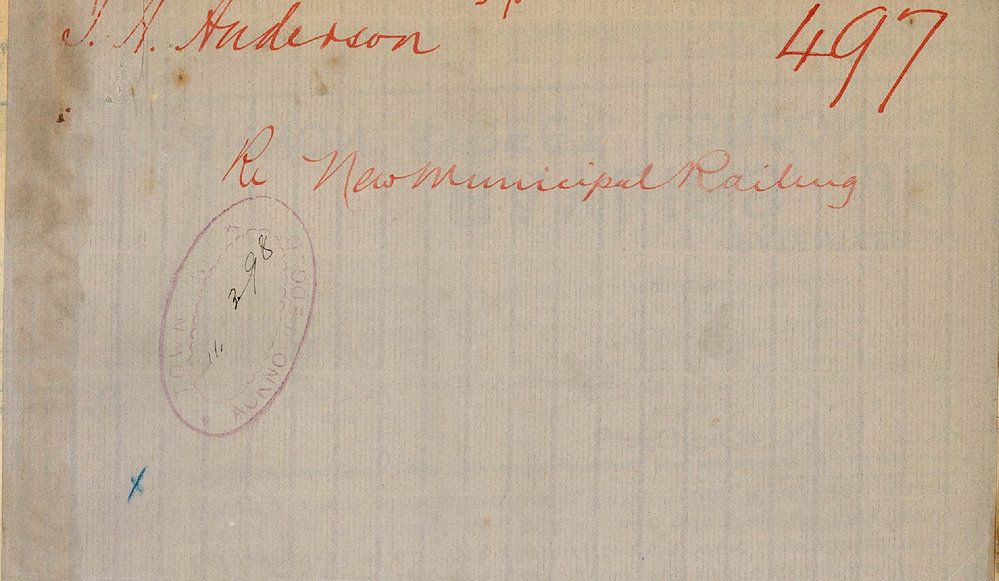 J. A. Anderson
497
Re New Municipal Railing
TOWN
398
ACKNO LEDG D
x